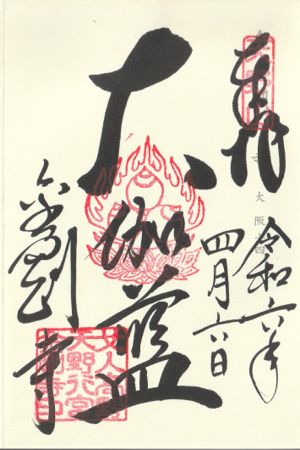 奉拝
令和六年
四月六日
大伽藍
金剛寺
女人高野
天野行宮
金剛寺印
大阪